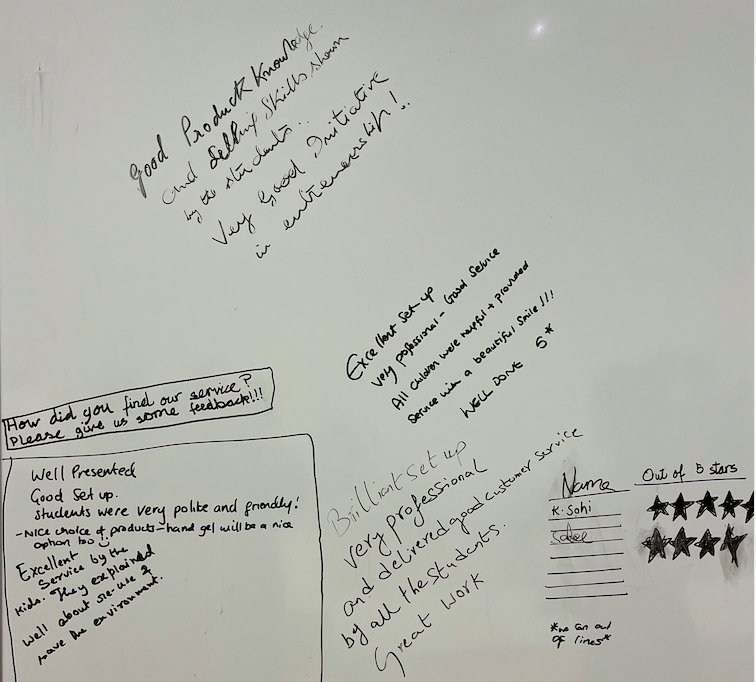 Good Product Knowledge.
and selling skills shown
by the students..
Very Good Initiative
in entreneurship!..
Excellent set-up
very professional - Good Service
All children were helpful + provided
service with a beautiful smile!!!
WELL DONE 5*
How did you find our service?
Please give us some feedback!!!
Well Presented
Good Set up.
Students were very polite and friendly!
- NICE choice of products - hand gel will be a nice
option too
Excellent
Service by the
Kids. They explained
well about re-use &
save the environment.
Brilliant set up
very professional
and delivered good customer service
by all the students.
Great work
Name
Out of 5 stars
K. Sohi
*we ran out
of lines*